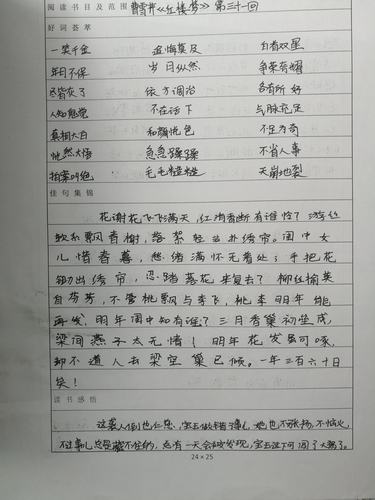 阅读书目及范围 曹雪芹《红楼梦》第三十一回
好词荟萃
一笑千金 追悔莫及 白首双星
年月不保 岁月纵然 争荣夸耀
尽皆灰了 依方调治 各有所好
人知鬼觉 不在话下 气脉充足
真相大白 和颜悦色 不足为奇
恍然大悟 急急躁躁 不省人事
拍案叫绝 毛毛糙糙 天崩地裂
佳句集锦
花谢花飞飞满天,红消香断有谁怜?游丝
软系飘春榭,落絮轻沾扑绣帘。闺中女
儿惜春暮,愁绪满怀无着处;手把花
锄出绣帘,忍踏落花来复去?柳丝榆荚
自芳芳,不管桃飘与李飞,桃李明年能
再发,明年闺中知有谁?三月香巢初垒成,
梁间燕子太无情!明年花发虽可啄,
却不道人去梁空巢已倾。一年三百六十日
矣!
读书感悟
这袭人倒也仁思,宝玉做错了事儿,她也不张扬,不恼火,
不过事儿总是藏不住的,总有一天会被发现,宝玉这下可闯了大祸了。
24×25